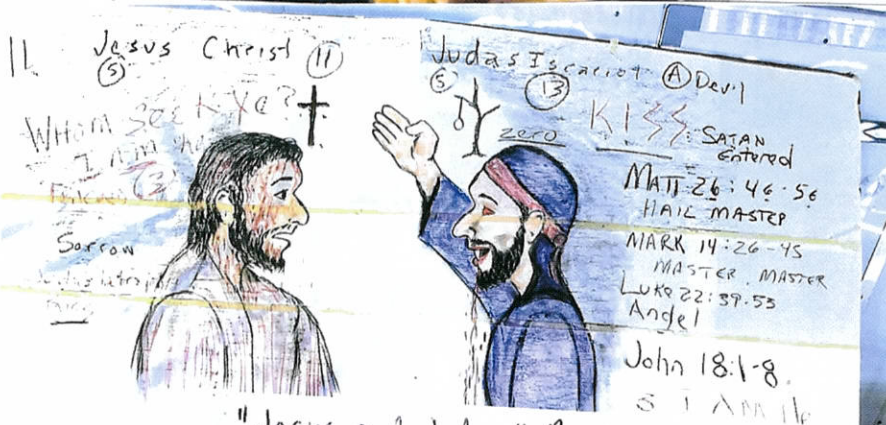 11
Jesus Christ (11)
(5)
Whom Seek Ye?
I Am he
Sorrow
Judas Iscariot
(5)
(13)
(A) Devil
zero
KISS
SATAN
Entered
MATT 26:46-56
HAIL MASTER
MARK 14:26-45
MASTER, MASTER
LUKE 22:39-53
Angel
John 18:1-8
I AM He